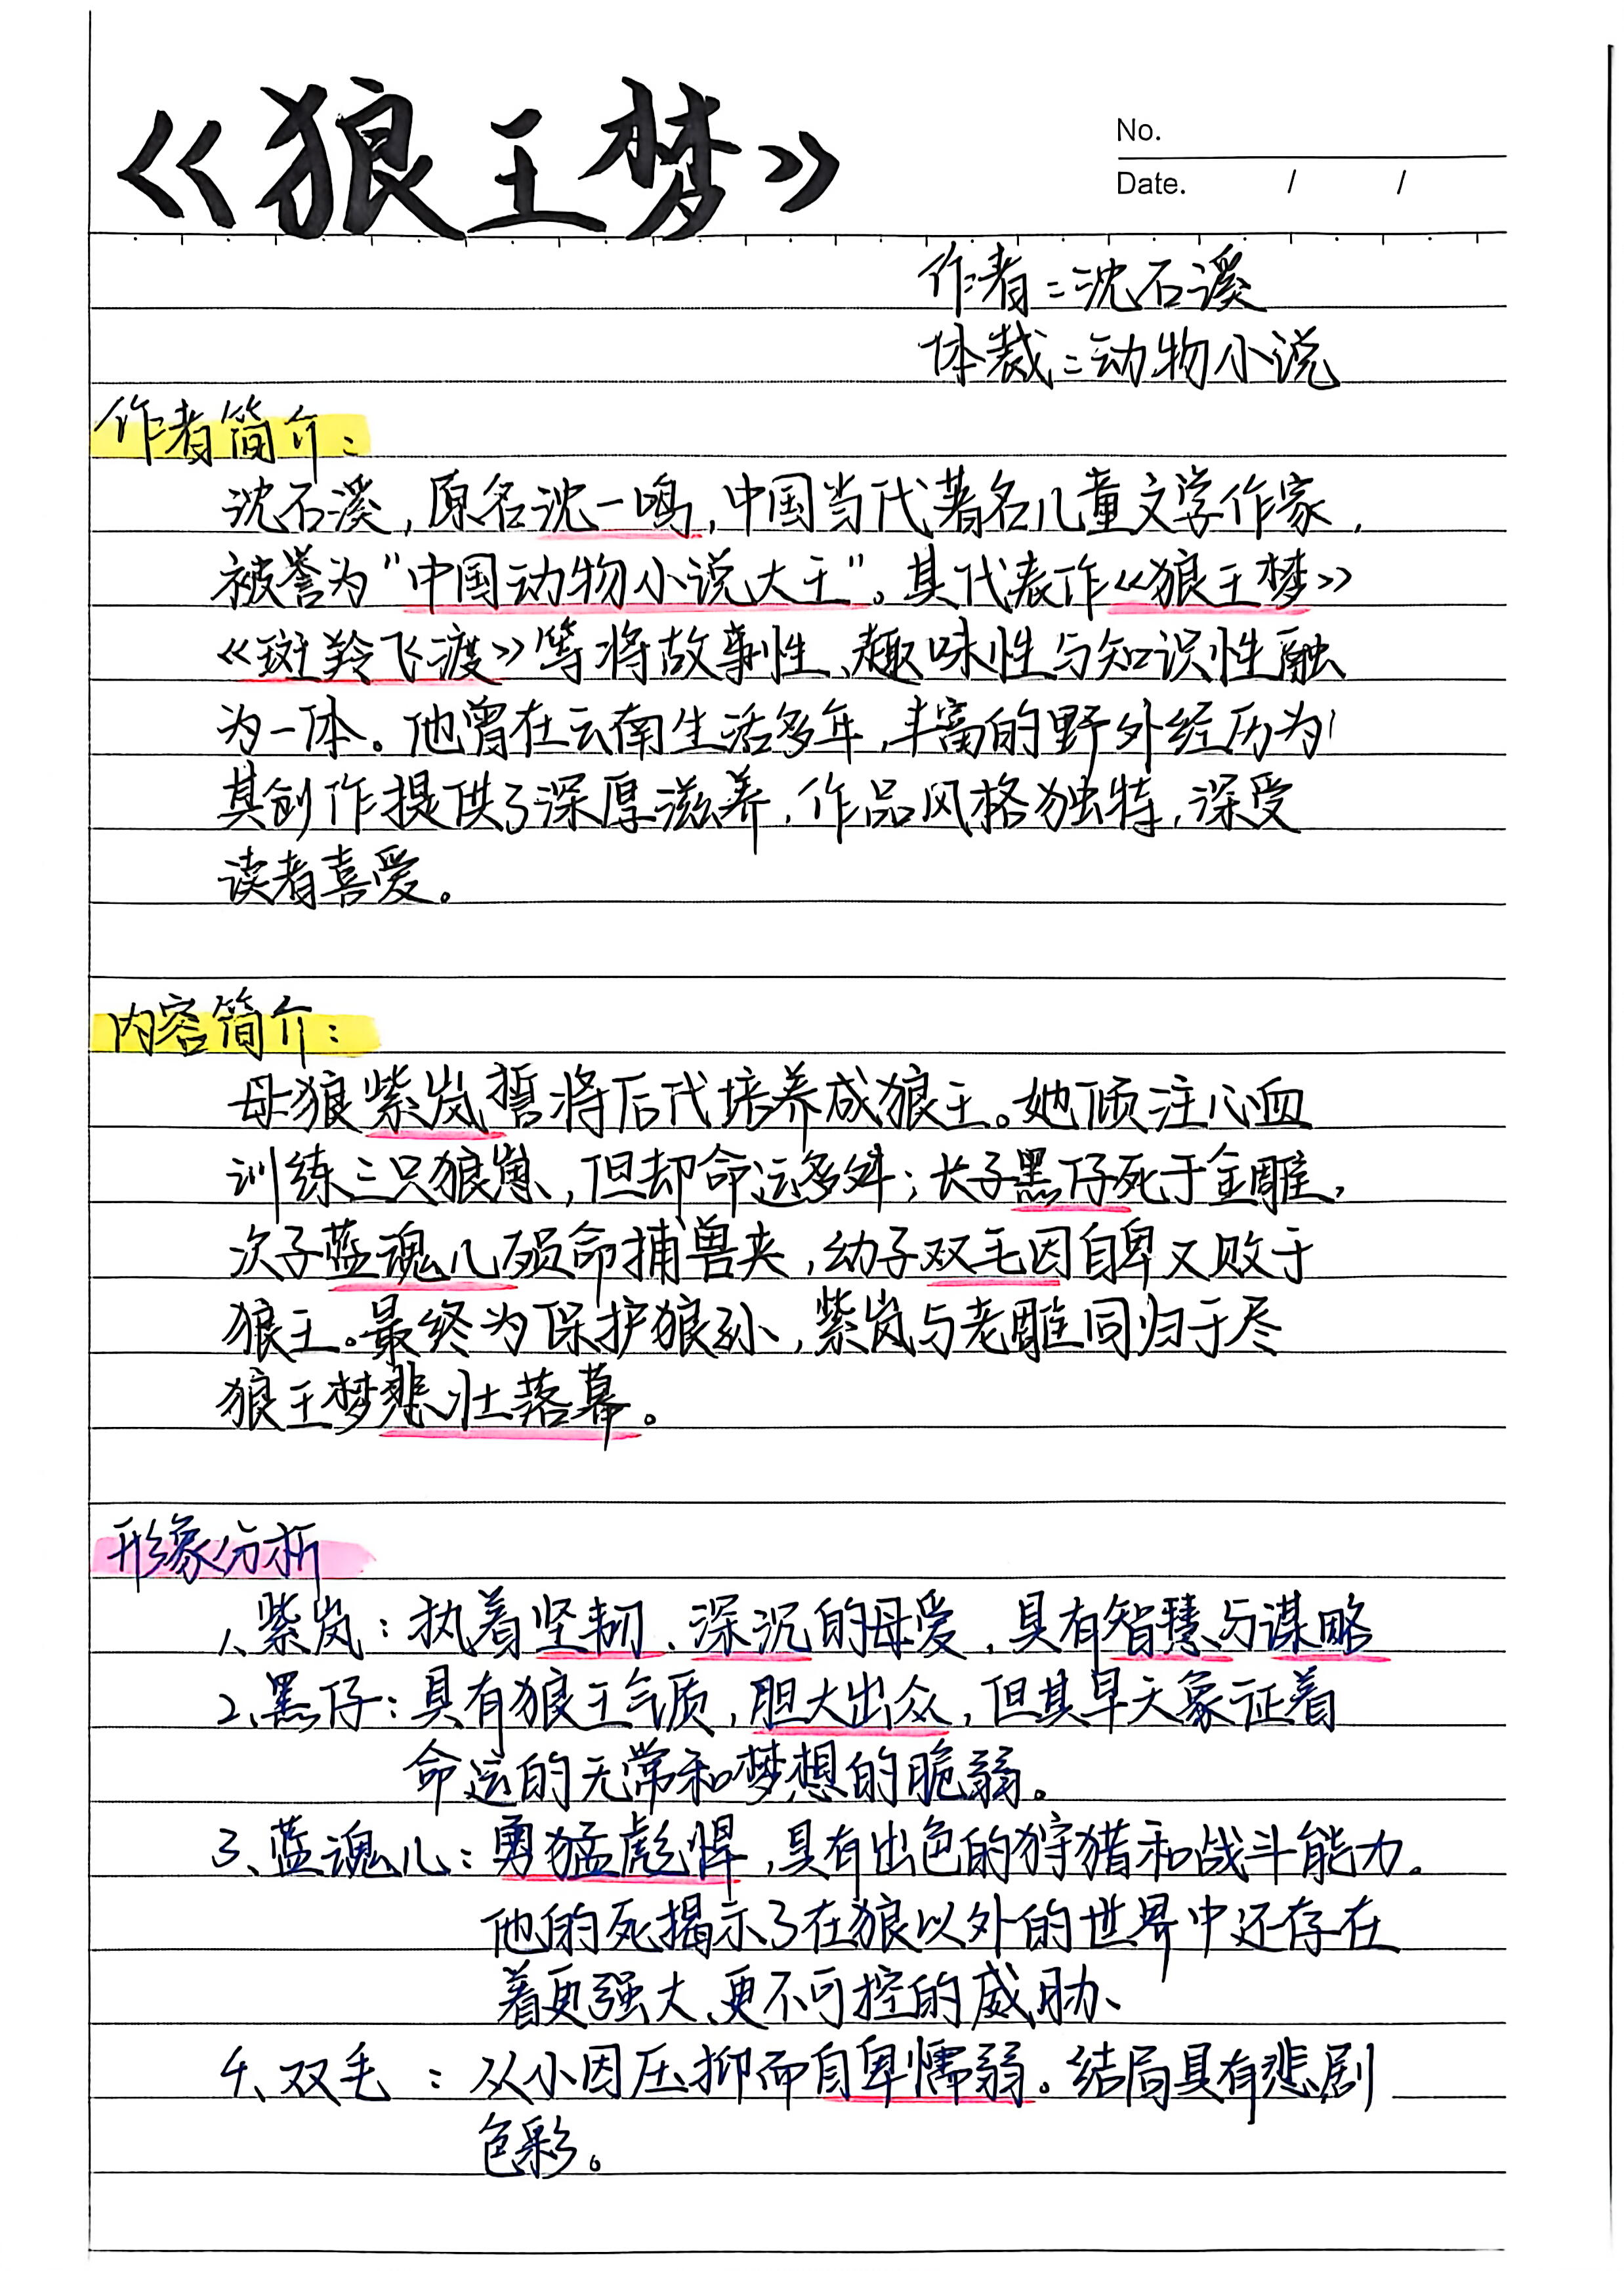 《狼王梦》
No.
Date. / /
作者:沈石溪
体裁:动物小说
作者简介:
沈石溪,原名沈一鸣,中国当代著名儿童文学作家,
被誉为"中国动物小说大王"。其代表作《狼王梦》
《斑羚飞渡》等将故事性、趣味性与知识性融
为一体。他曾在云南生活多年,丰富的野外经历为
其创作提供了深厚滋养,作品风格独特,深受
读者喜爱。
内容简介:
母狼紫岚誓将后代培养成狼王。她倾注心血
训练三只狼崽,但却命运多舛;长子黑仔死于金雕,
次子蓝魂儿殒命捕兽夹,幼子双毛因自卑又败于
狼王。最终为保护狼孙,紫岚与老雕同归于尽
狼王梦悲壮落幕。
形象分析
1、紫岚:执着坚韧、深沉的母爱,具有智慧与谋略
2、黑仔:具有狼王气质,胆大出众,但其早夭象证着
命运的无常和梦想的脆弱。
3、蓝魂儿:勇猛彪悍,具有出色的狩猎和战斗能力。
他的死揭示了在狼以外的世界中还存在
着更强大、更不可控的威胁、
4、双毛:从小因压抑而自卑懦弱。结局具有悲剧
色彩。